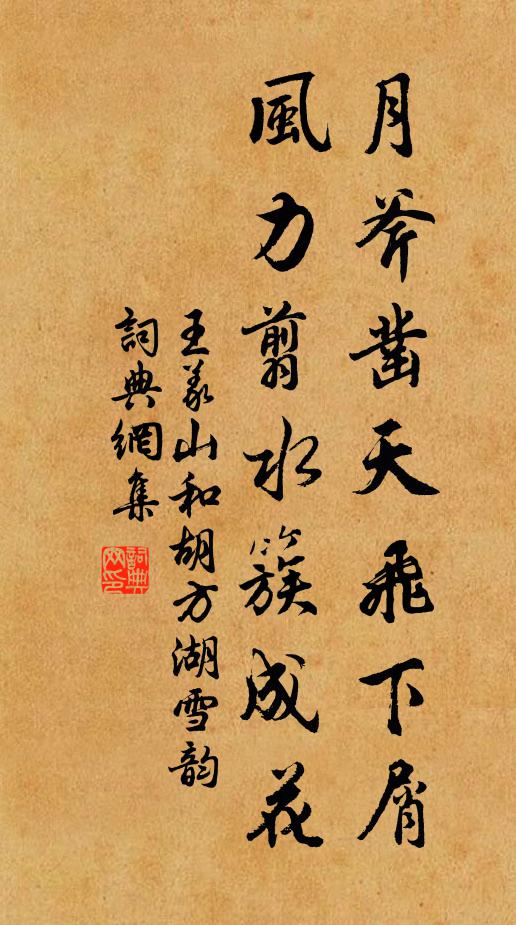 月斧凿天飛下屑
風力翦水簇成花
王義山和胡方湖雪韵
詞典網集
詞典网印